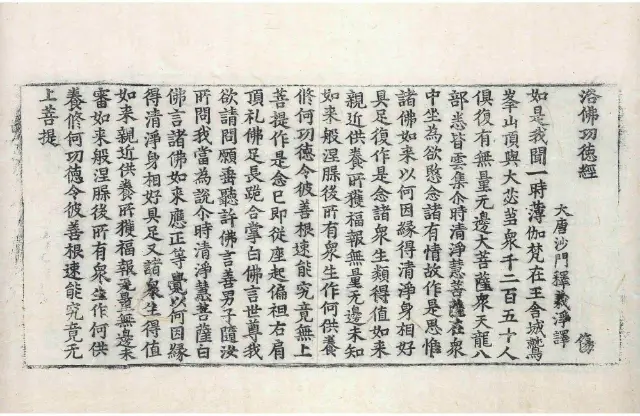 浴佛功德經
大唐沙門釋義淨譯
如是我聞一時薄伽梵在王舍城鷲
峯山頂與大苾芻衆千二百五十人
俱復有無量无邊大菩薩衆天龍八
部悉皆雲集尒時清淨慧菩薩在衆
中坐為欲愍念諸有情故作是思惟
諸佛如来以何因緣得清淨身相好
具足復作是念諸衆生類得值如来
親近供養所獲福報無量无邊未知
如来般涅縏後所有衆生作何供養
修何功德令彼善根速能究竟無上
菩提作是念已即從座起偏袒右肩
頂礼佛足長跪合掌白佛言世尊我
欲請問願垂聽許佛言善男子隨汝
所問我當為說尒時清淨慧菩薩白
佛言諸佛如来應正等覺以何因緣
得清淨身相好具足又諸衆生得值
如来親近供養所獲福報无量無邊未
審如来般涅縏後所有衆生作何供
養修何功德令彼善根速能究竟无
上菩提